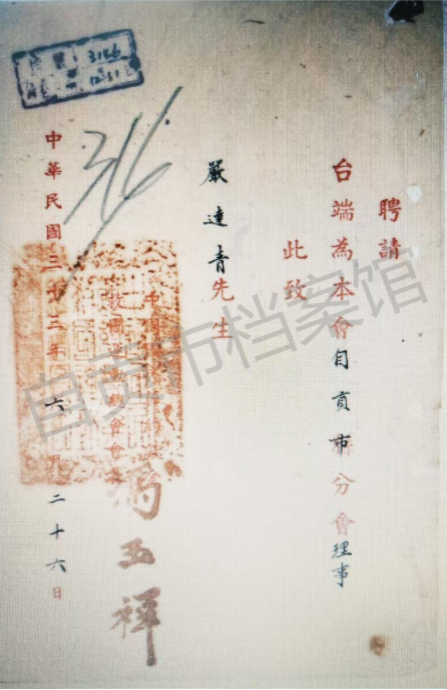 聘請
台端為本會自貢市分會理事
此致
嚴達青先生
馮玉祥
中華民國三十三年六月二十六日
自贡市档案馆